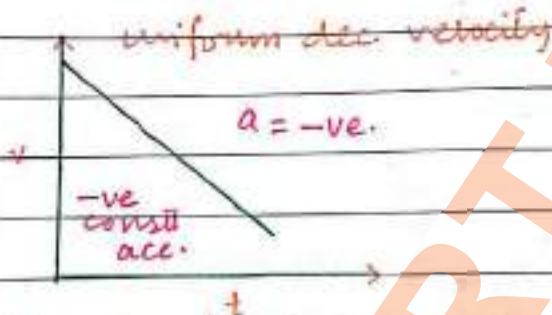 uniform dec. velocity
a = -ve.
v
-ve
const
acc.
t